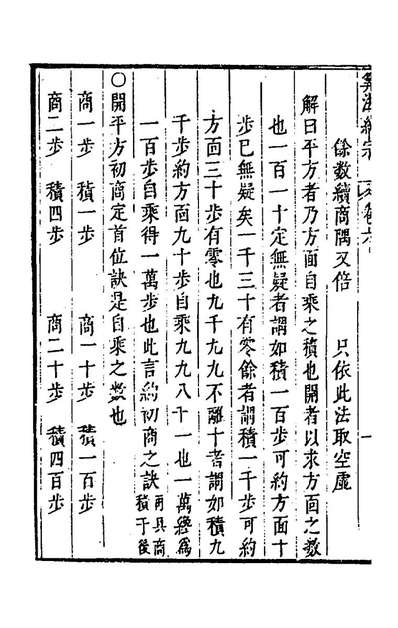 算法統宗 卷六 一
餘數續商隅又倍 只依此法取空虛
解曰平方者乃方面自乘之積也開者以求方面之數
也一百一十定無疑者謂如積一百步可約方面十
步已無疑矣一千三十有零餘者謂積一千步可約
方面三十步有零也九千九九不離十者謂如積九
千步約方面九十步自乘九九八千一也一萬纔為
一百步自乘得一萬步也此言約初商之訣再具商積于後
〇開平方初商定首位訣是自乘之數也
商一步 積一步 商一十步 積一百步
商二步 積四步 商二十步 積四百步